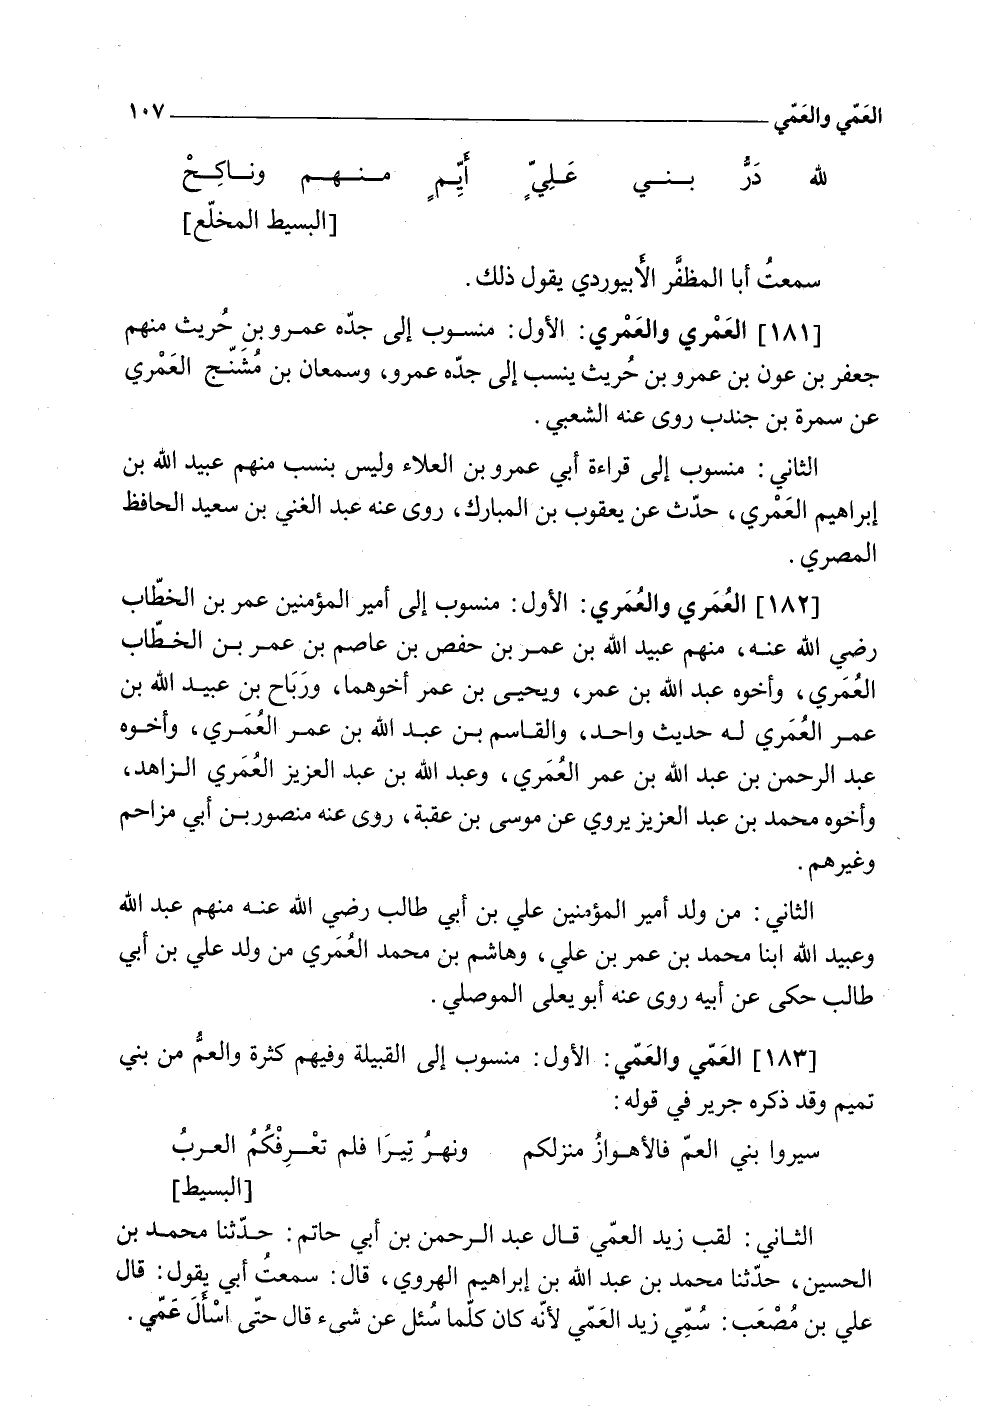 العَمّي والعَمّي ١٠٧
لله دَرُّ بـنـي عَـلِيٍّ أَيِّـمٍ مـنـهـم ونـاكِـحْ
[البسيط المخلّع]
سمعتُ أبا المظفَّر الأَبيوردي يقول ذلك.
[١٨١] العَمْري والعَمْري: الأول: منسوب إلى جدّه عمرو بن حُريث منهم
جعفر بن عون بن عمرو بن حُريث ينسب إلى جدّه عمرو، وسمعان بن مُشَنّج العَمْري
عن سمرة بن جندب روى عنه الشعبي.
الثاني: منسوب إلى قراءة أبي عمرو بن العلاء وليس بنسب منهم عبيد الله بن
إبراهيم العَمْري، حدّث عن يعقوب بن المبارك، روى عنه عبد الغني بن سعيد الحافظ
المصري.
[١٨٢] العُمَري والعُمَري: الأول: منسوب إلى أمير المؤمنين عمر بن الخطّاب
رضي الله عنه، منهم عبيد الله بن عمر بن حفص بن عاصم بن عمر بن الخطّاب
العُمَري، وأخوه عبد الله بن عمر، ويحيى بن عمر أخوهما، ورَبَاح بن عبيد الله بن
عمر العُمَري له حديث واحد، والقاسم بن عبد الله بن عمر العُمَري، وأخوه
عبد الرحمن بن عبد الله بن عمر العُمَري، وعبد الله بن عبد العزيز العُمَري الزاهد،
وأخوه محمد بن عبد العزيز يروي عن موسى بن عقبة، روى عنه منصور بن أبي مزاحم
وغيرهم.
الثاني: من ولد أمير المؤمنين علي بن أبي طالب رضي الله عنه منهم عبد الله
وعبيد الله ابنا محمد بن عمر بن علي، وهاشم بن محمد العُمَري من ولد علي بن أبي
طالب حكى عن أبيه روى عنه أبو يعلى الموصلي.
[١٨٣] العَمّي والعَمّي: الأول: منسوب إلى القبيلة وفيهم كثرة والعمُّ من بني
تميم وقد ذكره جرير في قوله:
سيروا بني العمّ فالأهوازُ منزلكم ونهرُ تِيرَا فلم تعْرِفْكُمُ العربُ
[البسيط]
الثاني: لقب زيد العمّي قال عبد الرحمن بن أبي حاتم: حدّثنا محمد بن
الحسين، حدّثنا محمد بن عبد الله بن إبراهيم الهروي، قال: سمعتُ أبي يقول: قال
علي بن مُصْعَب: سُمِّي زيد العَمّي لأنّه كان كلّما سُئل عن شىء قال حتّى اسْأَلَ عَمِّي.